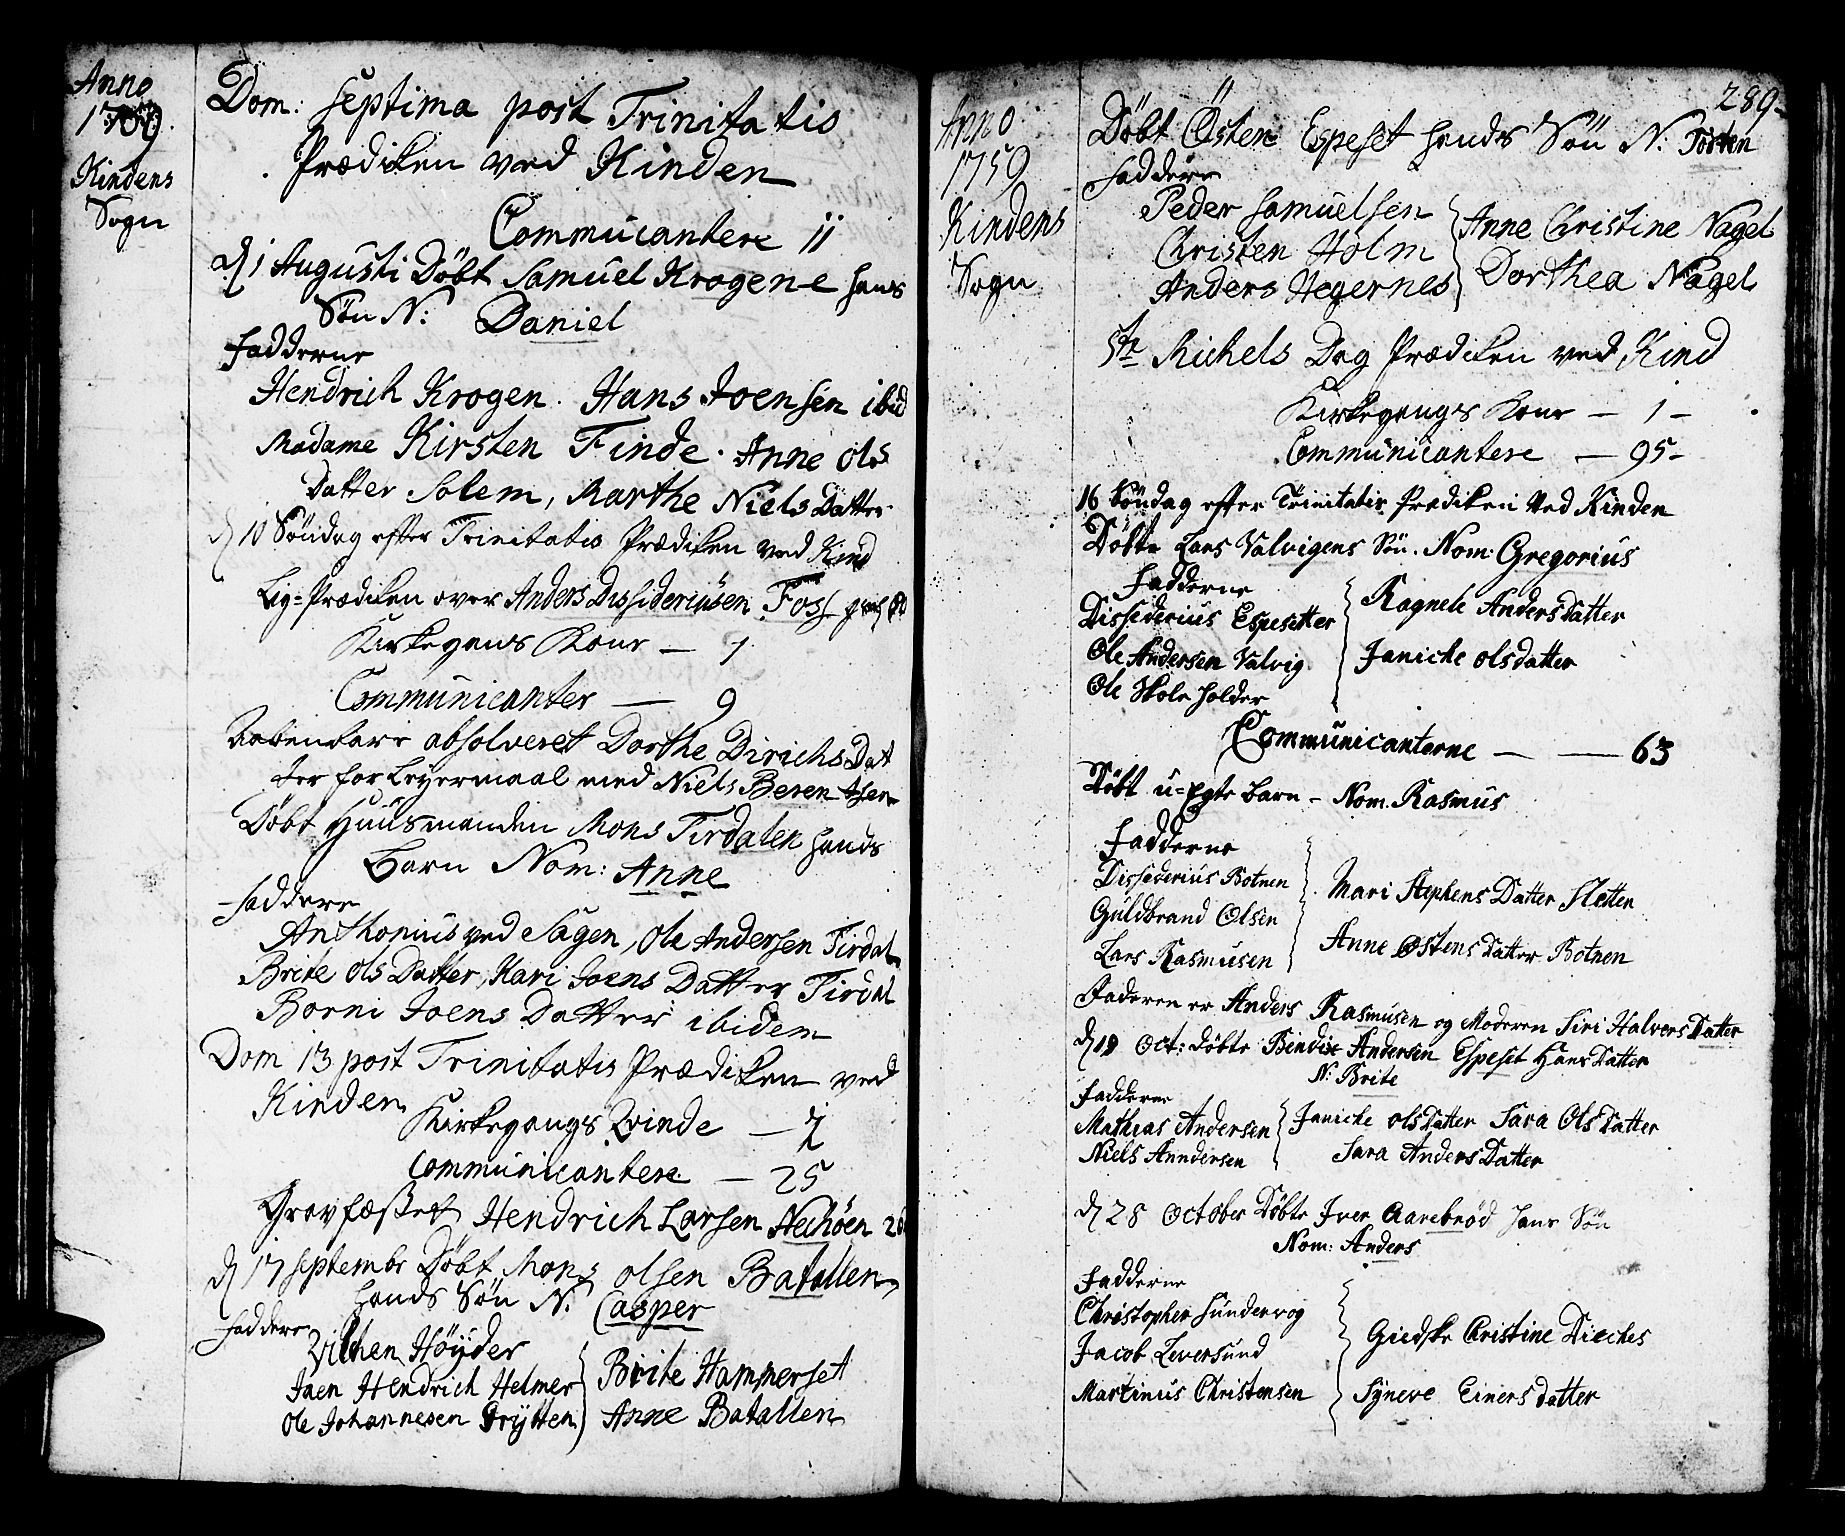 Anno
1759
Kindens
Sogn
Dom: septima post Trinitatis
Prædiken ved Kinden
Communicantere 11
d 1 Augusti Döbt Samuel Krogene hans
Sön N: Daniel
Fadderne
Hendrich Krogen. Hans Joensen ibid
Madame Kirsten Finde. Anne Ols
Datter Solem, Marthe Niels Datter
d 10 Söndag efter Trinitatis Prædiken ved Kind
Lig=Prædiken over Anders Dissideriüsen Foss
Kirkegangs Kone — 1
Communicanter — 9
Aabenbare absolveret Dorthe Dirichs Dat
ter for Leyermaal med Niels Berentsen
Döbt Huusmanden Mons Tirdalen hands
Barn Nom: Anne
Faddere
Anthonius ved Sagen, Ole Andersen Tirdal
Brite Ols Datter, Kari Joens Datter Tirdal
Borni Joens Datter ibidem
Dom 13 post Trinitatis Prædiken ved
Kinden
Kirkegangs Qvinde — 2
Communicantere — 25
Gravfæstet Hendrich Larsen Nechöen
d 17 septembr Döbt Mons olsen Batallen
hands Sön N. Casper
Faddere
Wilchen Höyder
Joen Hendrich Helmer } Brite Hammerset
Ole Johannesen Grytten } Anne Batallen
289
Anno
1759
Kindens
Sogn
Döbt Östen Espeset hands Sön N: Tosten
Faddere
Peder Samuelsen { Anne Christine Nagel
Christen Holm
Anders Hegernes { Dorthea Nagel
Ste Michels Dag Prædiken ved Kind
Kirkegangs Kone — 1 —
Communicantere — 95 —
16 Söndag efter Trinitatis Prediken ved Kinden
Döbte Lars Valvigens Sön. Nom: Gregorius
Fadderne
Dissiderius Espesetter { Ragnele Anders Datter
Ole Andersen Valvig { Janiche olsdatter
Ole Skoleholder
Communicanterne — — 63
Döbt u=Egte barn – Nom. Rasmus
Fadderne
Dissiderius Botnen { Mari Stephens Datter Sletten
Guldbrand Olsen
Lars Rasmusen { Anne Østens Datter Botnen
Faderen er Anders Rasmusen og Moderen Siri Halvers Datter
d 19 Oct: Döbte Bendix Andersen Espeset Hans Datter
N: Brite
Fadderne
Mathias Andersen { Janiche ols Datter Sara Ols Datter
Niels Anndersen { Sara Anders Datter
d 28 October Döbte Iver Aarebrød hans Sön
Nom: Anders
Fadderne
Christopher Sundervog
Jacob Leversund { Giedske Christine Dieches
Martinus Christensen { Syneve Einersdatter